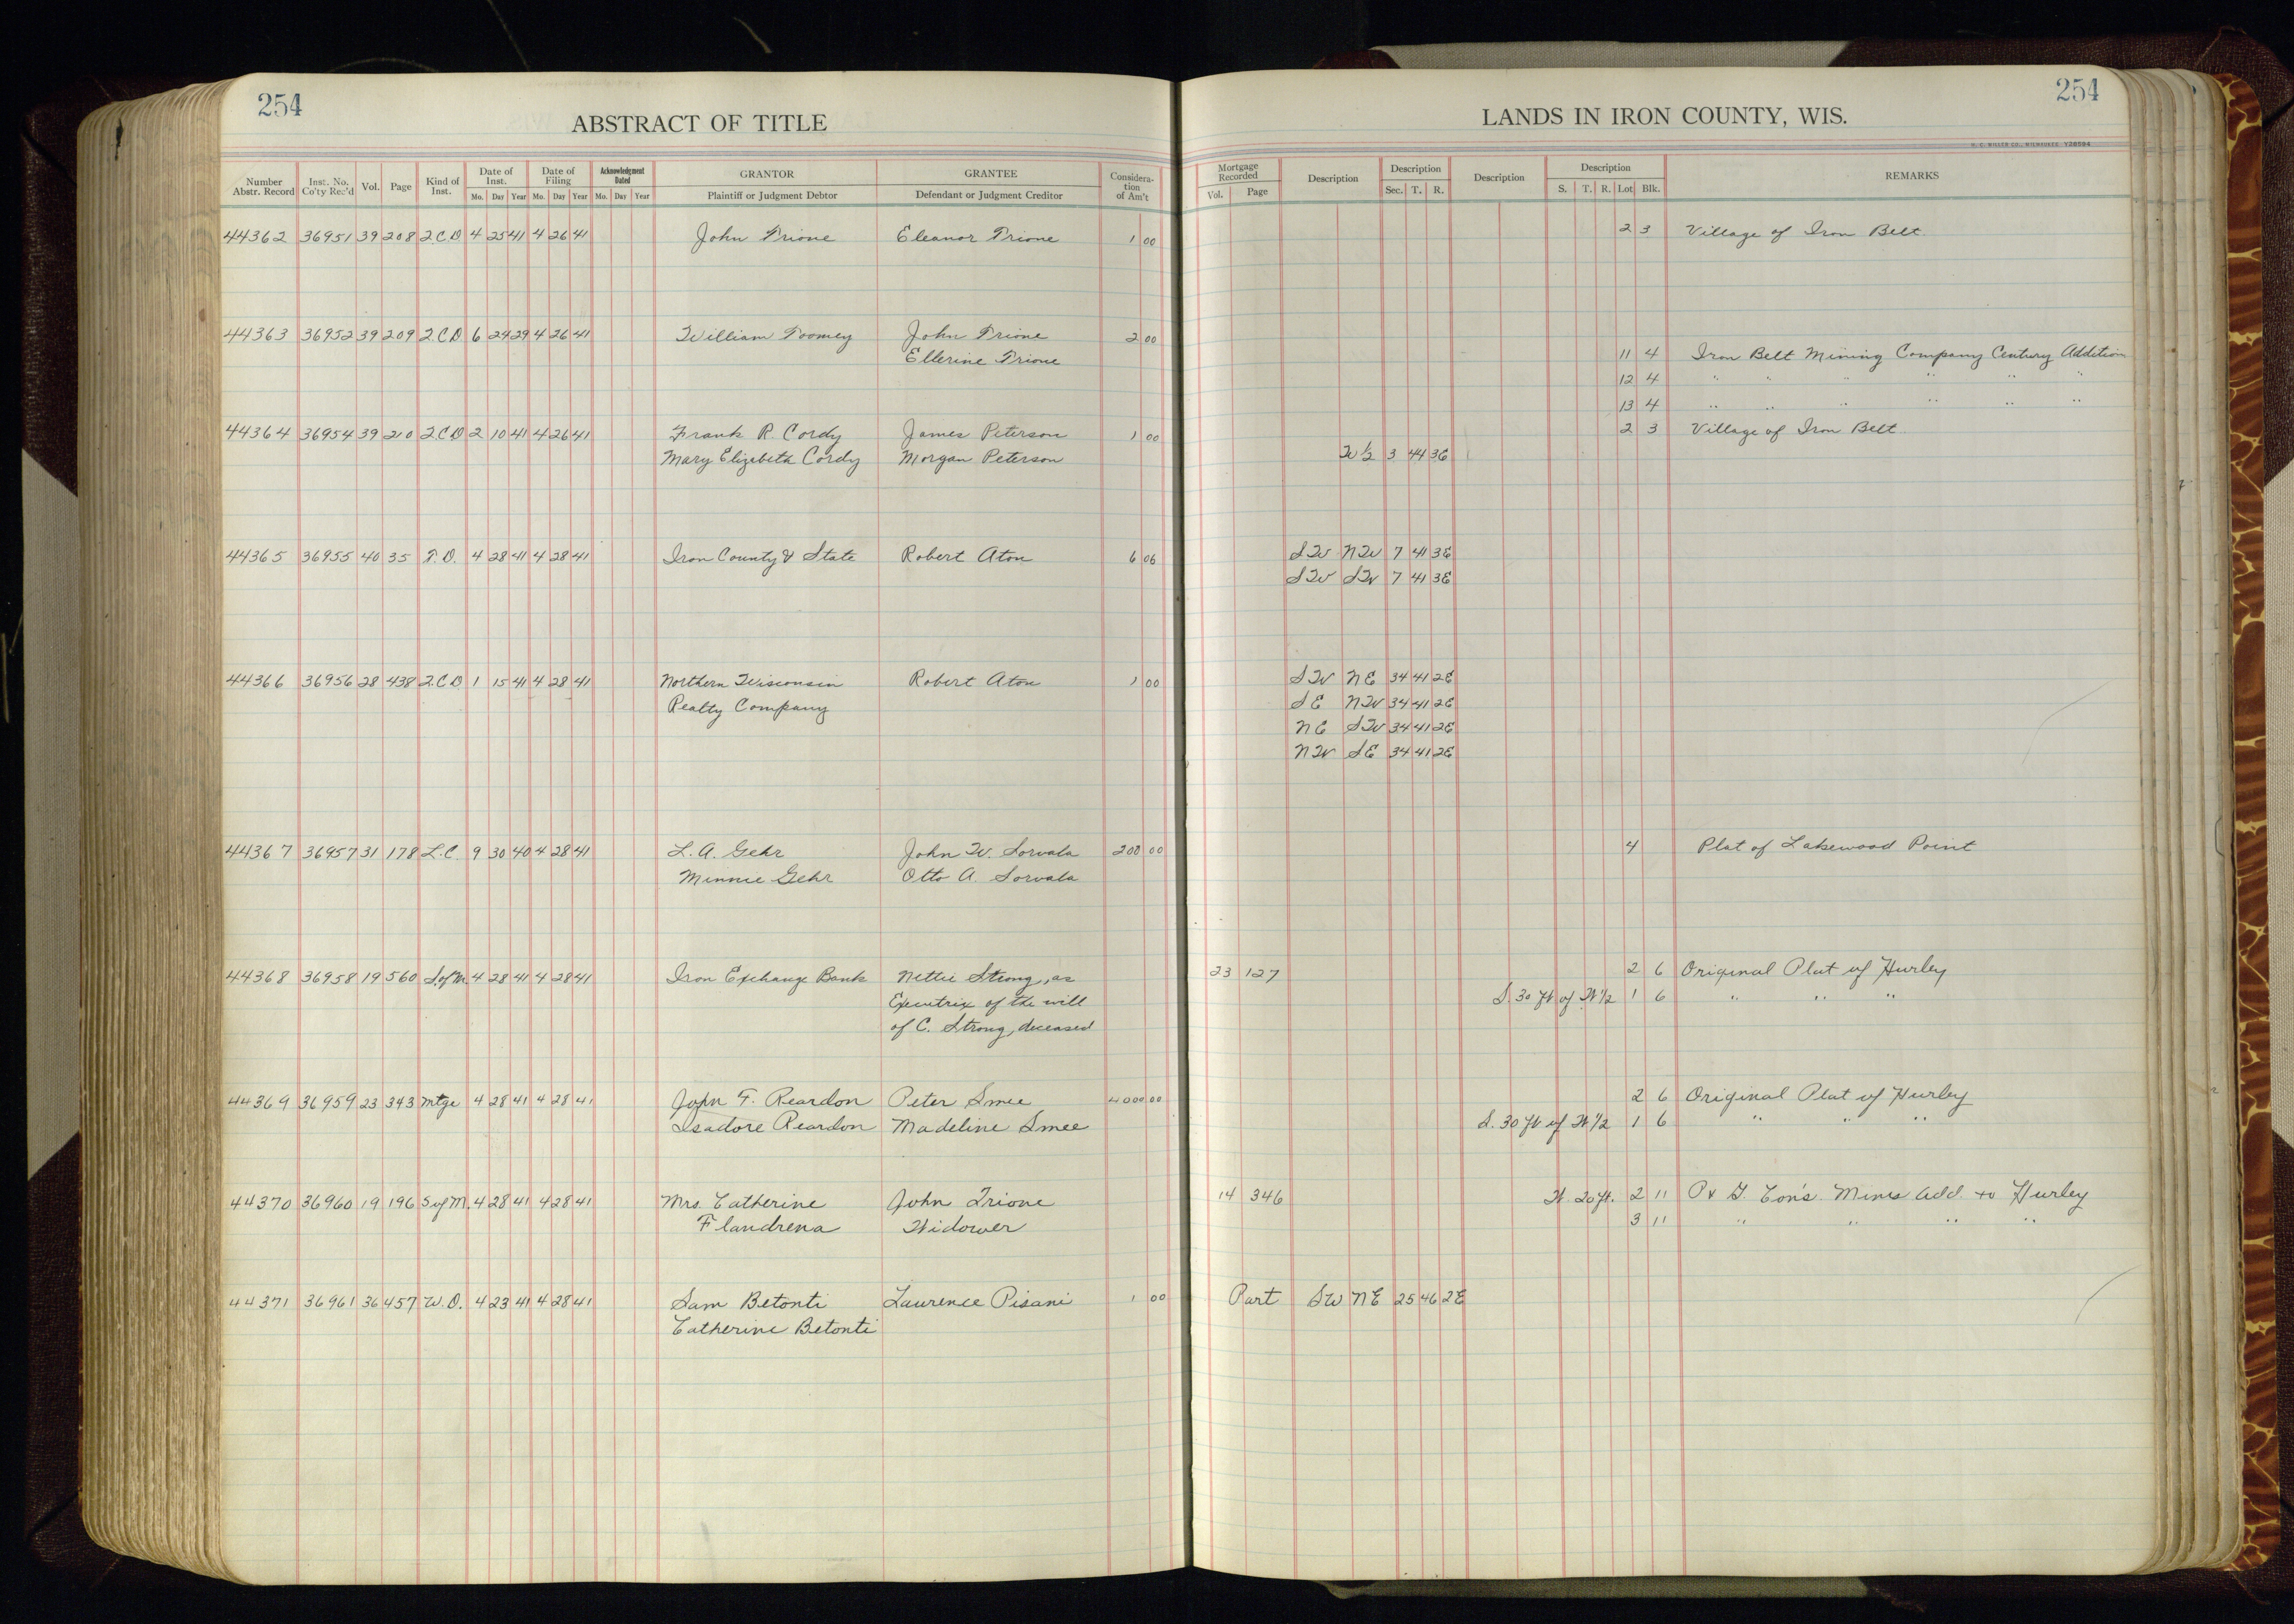 254
ABSTRACT OF TITLE
Number Abstr. Record | Inst. No. Co'ty Rec'd | Vol. | Page | Kind of Inst. | Date of Inst. Mo. Day Year | Date of Filing Mo. Day Year | Acknowledgment Dated Mo. Day Year | GRANTOR Plaintiff or Judgment Debtor | GRANTEE Defendant or Judgment Creditor | Considera- tion of Am't
44362 36951 39 208 Q.C.D 4 25 41 4 26 41 John Trione Eleanor Trione 1 00
44363 36952 39 209 Q.C.D 6 24 29 4 26 41 William Toomey John Trione 2 00
Ellerine Trione
44364 36954 39 210 Q.C.D 2 10 41 4 26 41 Frank R. Cordy James Peterson 1 00
Mary Elizabeth Cordy Morgan Peterson
44365 36955 40 35 T.D. 4 28 41 4 28 41 Iron County & State Robert Aton 6 06
44366 36956 28 438 Q.C.D 1 15 41 4 28 41 Northern Wisconsin Robert Aton 1 00
Realty Company
44367 36957 31 178 L.C. 9 30 40 4 28 41 L. A. Gehr John W. Sorvala 200 00
Minnie Gehr Otto A. Sorvala
44368 36958 19 560 S.of M. 4 28 41 4 28 41 Iron Exchange Bank Nettie Strong, as
Executrix of the will
of C. Strong, deceased
44369 36959 23 343 Mtge 4 28 41 4 28 41 John F. Reardon Peter Smee 4000 00
Isadore Reardon Madeline Smee
44370 36960 19 196 S of M. 4 28 41 4 28 41 Mrs. Catherine John Trione
Flandrena Widower
44371 36961 36 457 W.D. 4 23 41 4 28 41 Sam Betonti Laurence Pisani 1 00
Catherine Betonti
254
LANDS IN IRON COUNTY, WIS.
H. C. MILLER CO., MILWAUKEE Y28594
Mortgage Recorded Vol. Page | Description | Description Sec. T. R. | Description | Description S. T. R. Lot Blk. | REMARKS
2 3 Village of Iron Belt
11 4 Iron Belt Mining Company Century Addition
12 4 " " " " " "
13 4 " " " " " "
2 3 Village of Iron Belt
W½ 3 44 3E
SW NW 7 41 3E
SW SW 7 41 3E
SW NE 34 41 2E
SE NW 34 41 2E
NE SW 34 41 2E
NW SE 34 41 2E
4 Plat of Lakewood Point
23 127 2 6 Original Plat of Hurley
S. 30 ft of W ½ 1 6 " " "
2 6 Original Plat of Hurley
S. 30 ft of W ½ 1 6 " " "
14 346 W. 20 ft. 2 11 P & G. Con's. Mines Add. to Hurley
3 11 " " " "
Part SW NE 25 46 2E